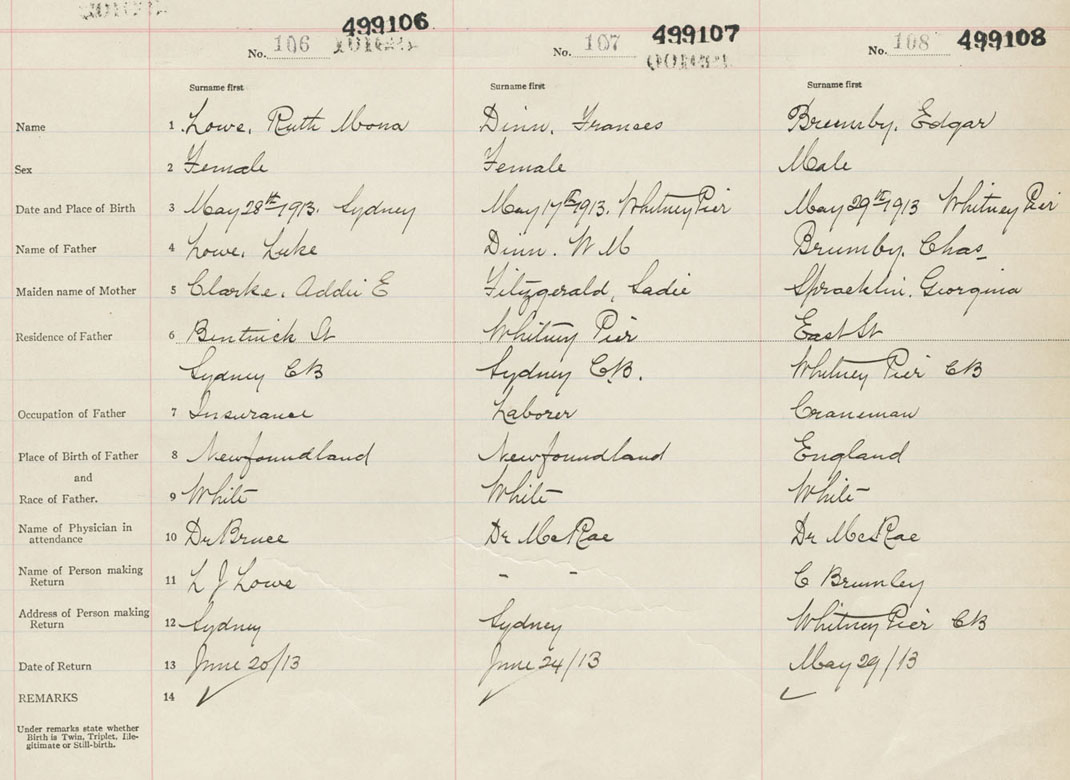 499106 499107 499108
No. 106 No. 107 No. 108
Surname first Surname first Surname first
Name 1 Lowe, Ruth Mona Dinn, Frances Brumby, Edgar
Sex 2 Female Female Male
Date and Place of Birth 3 May 28th 1913. Sydney May 17th 1913. Whitney Pier May 29th 1913 Whitney Pier
Name of Father 4 Lowe, Luke Dinn. W M Brumby, Chas
Maiden name of Mother 5 Clarke, Addie E Fitzgerald, Sadie Spracklin, Georgina
Residence of Father 6 Bentinck St Whitney Pier East St
Sydney CB Sydney C.B. Whitney Pier CB
Occupation of Father 7 Insurance Laborer Craneman
Place of Birth of Father 8 Newfoundland Newfoundland England
and
Race of Father. 9 White White White
Name of Physician in
attendance 10 Dr Bruce Dr McRae Dr McRae
Name of Person making
Return 11 L J Lowe - - C Brumley
Address of Person making
Return 12 Sydney Sydney Whitney Pier CB
Date of Return 13 June 20/13 June 24/13 May 29/13
REMARKS 14 ✓ ✓ ✓
Under remarks state whether
Birth is Twin, Triplet, Ille-
gitimate or Still-birth.